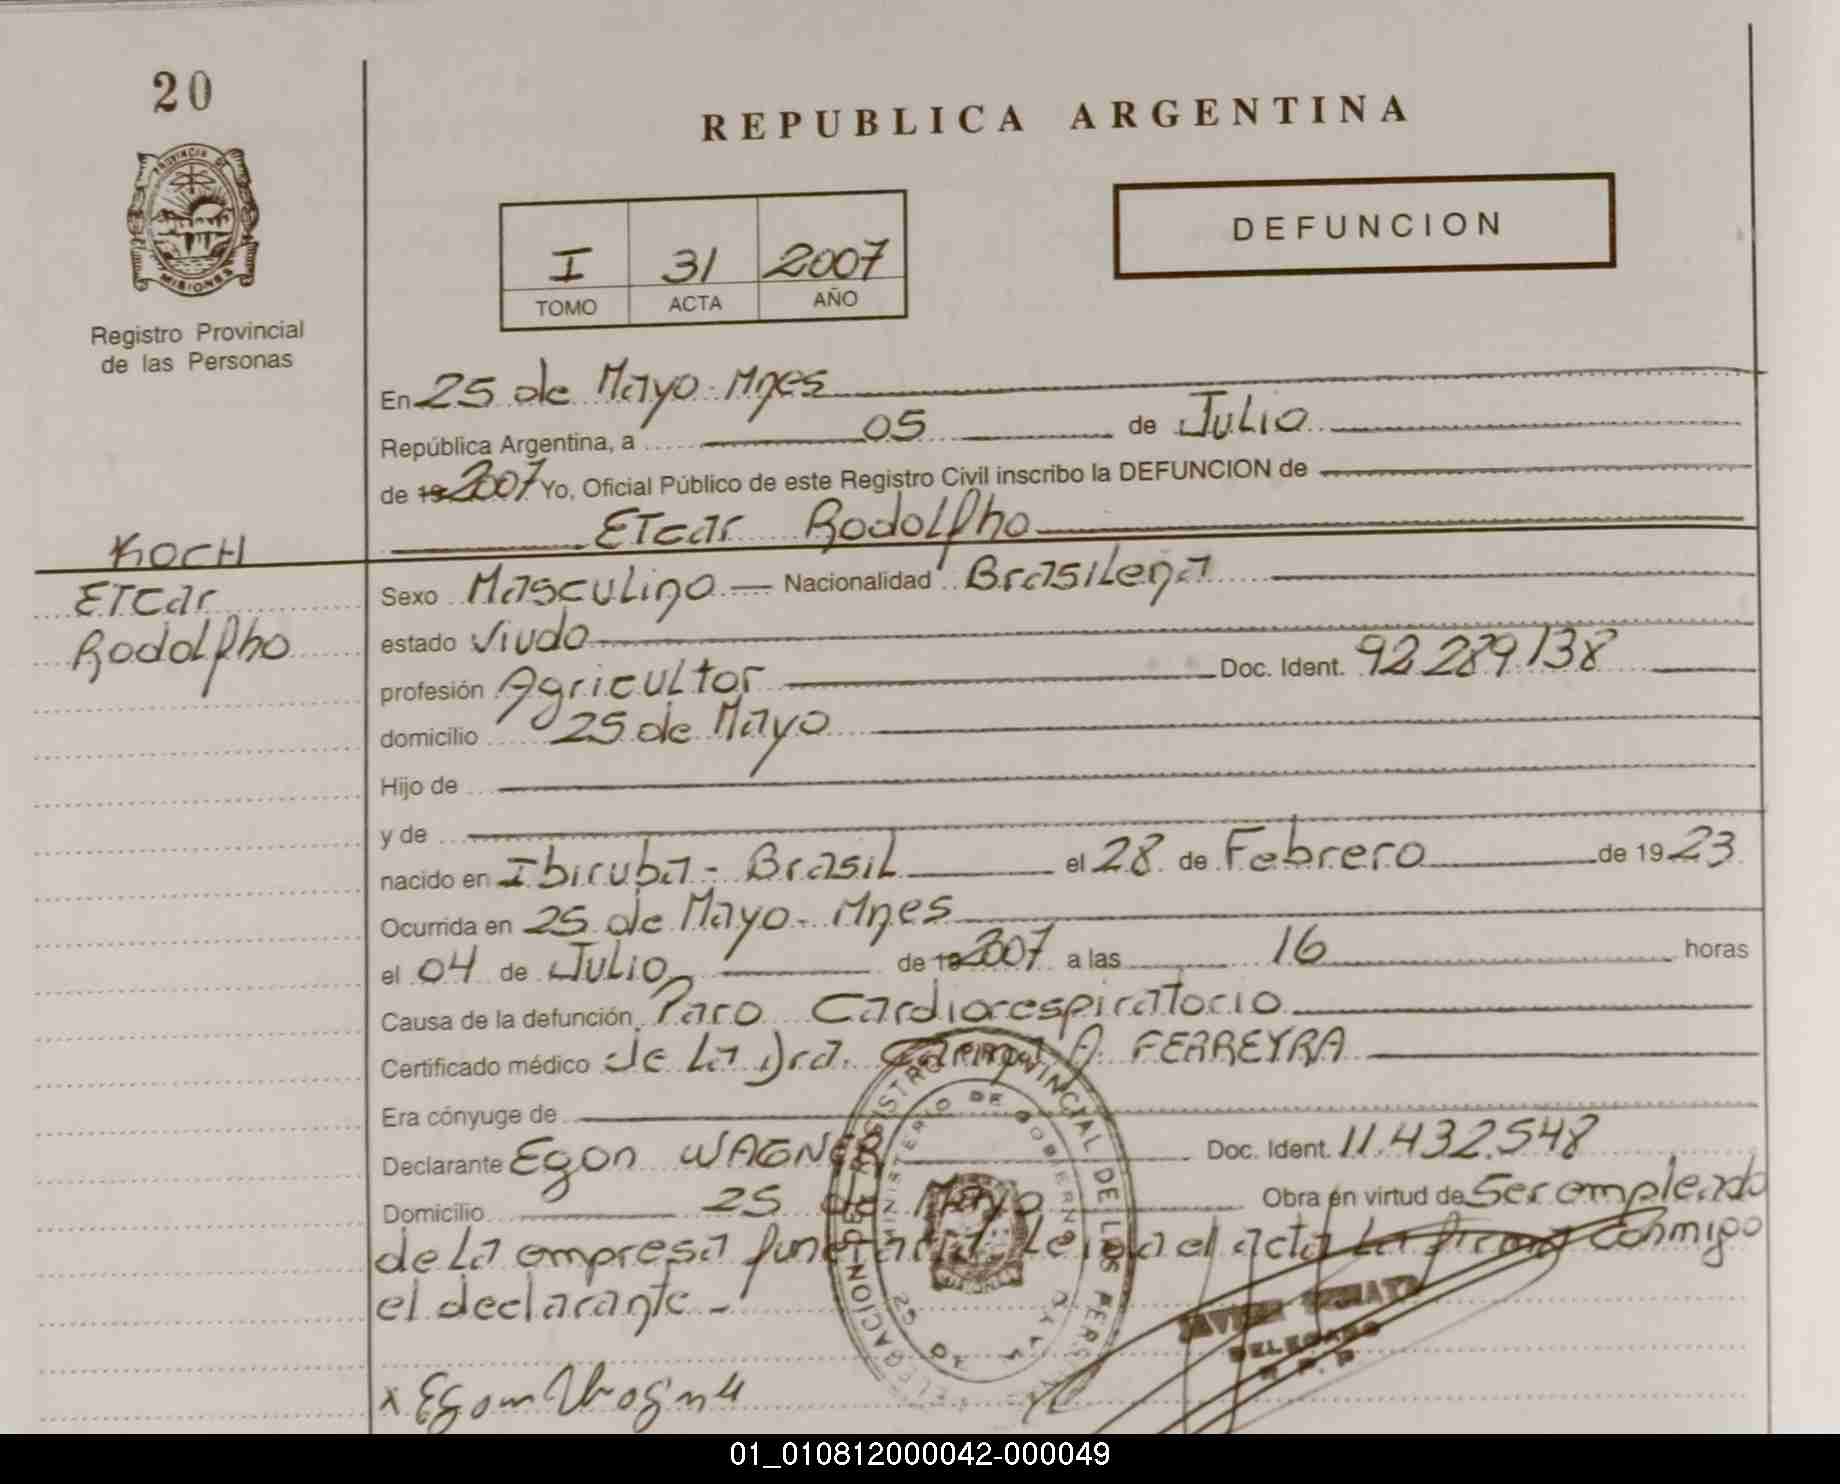 20
PROVINCIA DE
MISIONES
Registro Provincial
de las Personas
REPUBLICA ARGENTINA
I 31 2007
TOMO ACTA AÑO
DEFUNCION
En 25 de Mayo - Mnes
República Argentina, a 05 de Julio
de 19 2007 Yo, Oficial Público de este Registro Civil inscribo la DEFUNCION de
Etcar Rodolfho
KOCH
Etcar
Rodolfho
Sexo Masculino Nacionalidad Brasileña
estado Viudo
profesión Agricultor Doc. Ident. 92.289.138
domicilio 25 de Mayo
Hijo de
y de
nacido en Ibiruba - Brasil el 28 de Febrero de 1923
Ocurrida en 25 de Mayo - Mnes
el 04 de Julio de 19 2007 a las 16 horas
Causa de la defunción Paro Cardiorespiratorio
Certificado médico de la Dra. A. FERREYRA
Era cónyuge de
Declarante Egon WAGNER Doc. Ident. 11.432.548
Domicilio 25 de Mayo Obra en virtud de Ser empleado
de la empresa funeraria Leida el acta la firma Conmigo
el declarante -
DELEGACION DEL REGISTRO PROVINCIAL DE LAS PERSONAS
MINISTERIO DE GOBIERNO
25 DE MAYO
MISIONES
JAVIER
DELEGADO
R. P. P.
x Egon Wagner
01_010812000042-000049